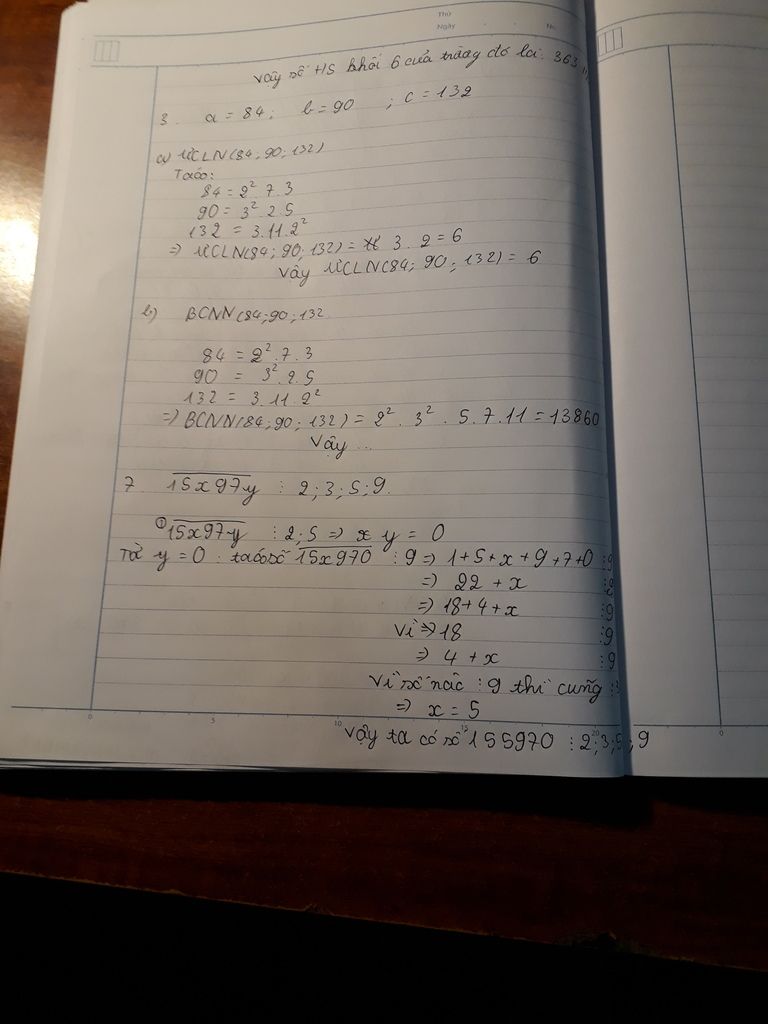 Thứ
Ngày . . No.
Vậy số HS khối 6 của trường đó là: 363
3. a = 84; b = 90 ; c = 132
a) ƯCLN(84; 90; 132)
Ta có:
84 = 2². 7. 3
90 = 3². 2. 5
132 = 3. 11. 2²
=> ƯCLN(84; 90; 132) = 3. 2 = 6
Vậy ƯCLN(84; 90; 132) = 6
b) BCNN(84; 90; 132
84 = 2². 7. 3
90 = 3². 2. 5
132 = 3. 11. 2²
=> BCNN(84; 90; 132) = 2². 3². 5. 7. 11 = 13860
Vậy ...
7. 15x97y ⋮ 2; 3; 5; 9.
① 15x97y ⋮ 2; 5 => x y = 0
Từ y = 0. ta có số 15x970 ⋮ 9 => 1+5+x+9+7+0 ⋮ 9
=> 22 + x ⋮ 9
=> 18+4+x ⋮ 9
Vì => 18 ⋮ 9
=> 4 + x ⋮ 9
Vì số nào ⋮ 9 thì cũng ⋮ 3
=> x = 5
0 5 10 15 20 0
Vậy ta có số 155970 ⋮ 2; 3; 5; 9